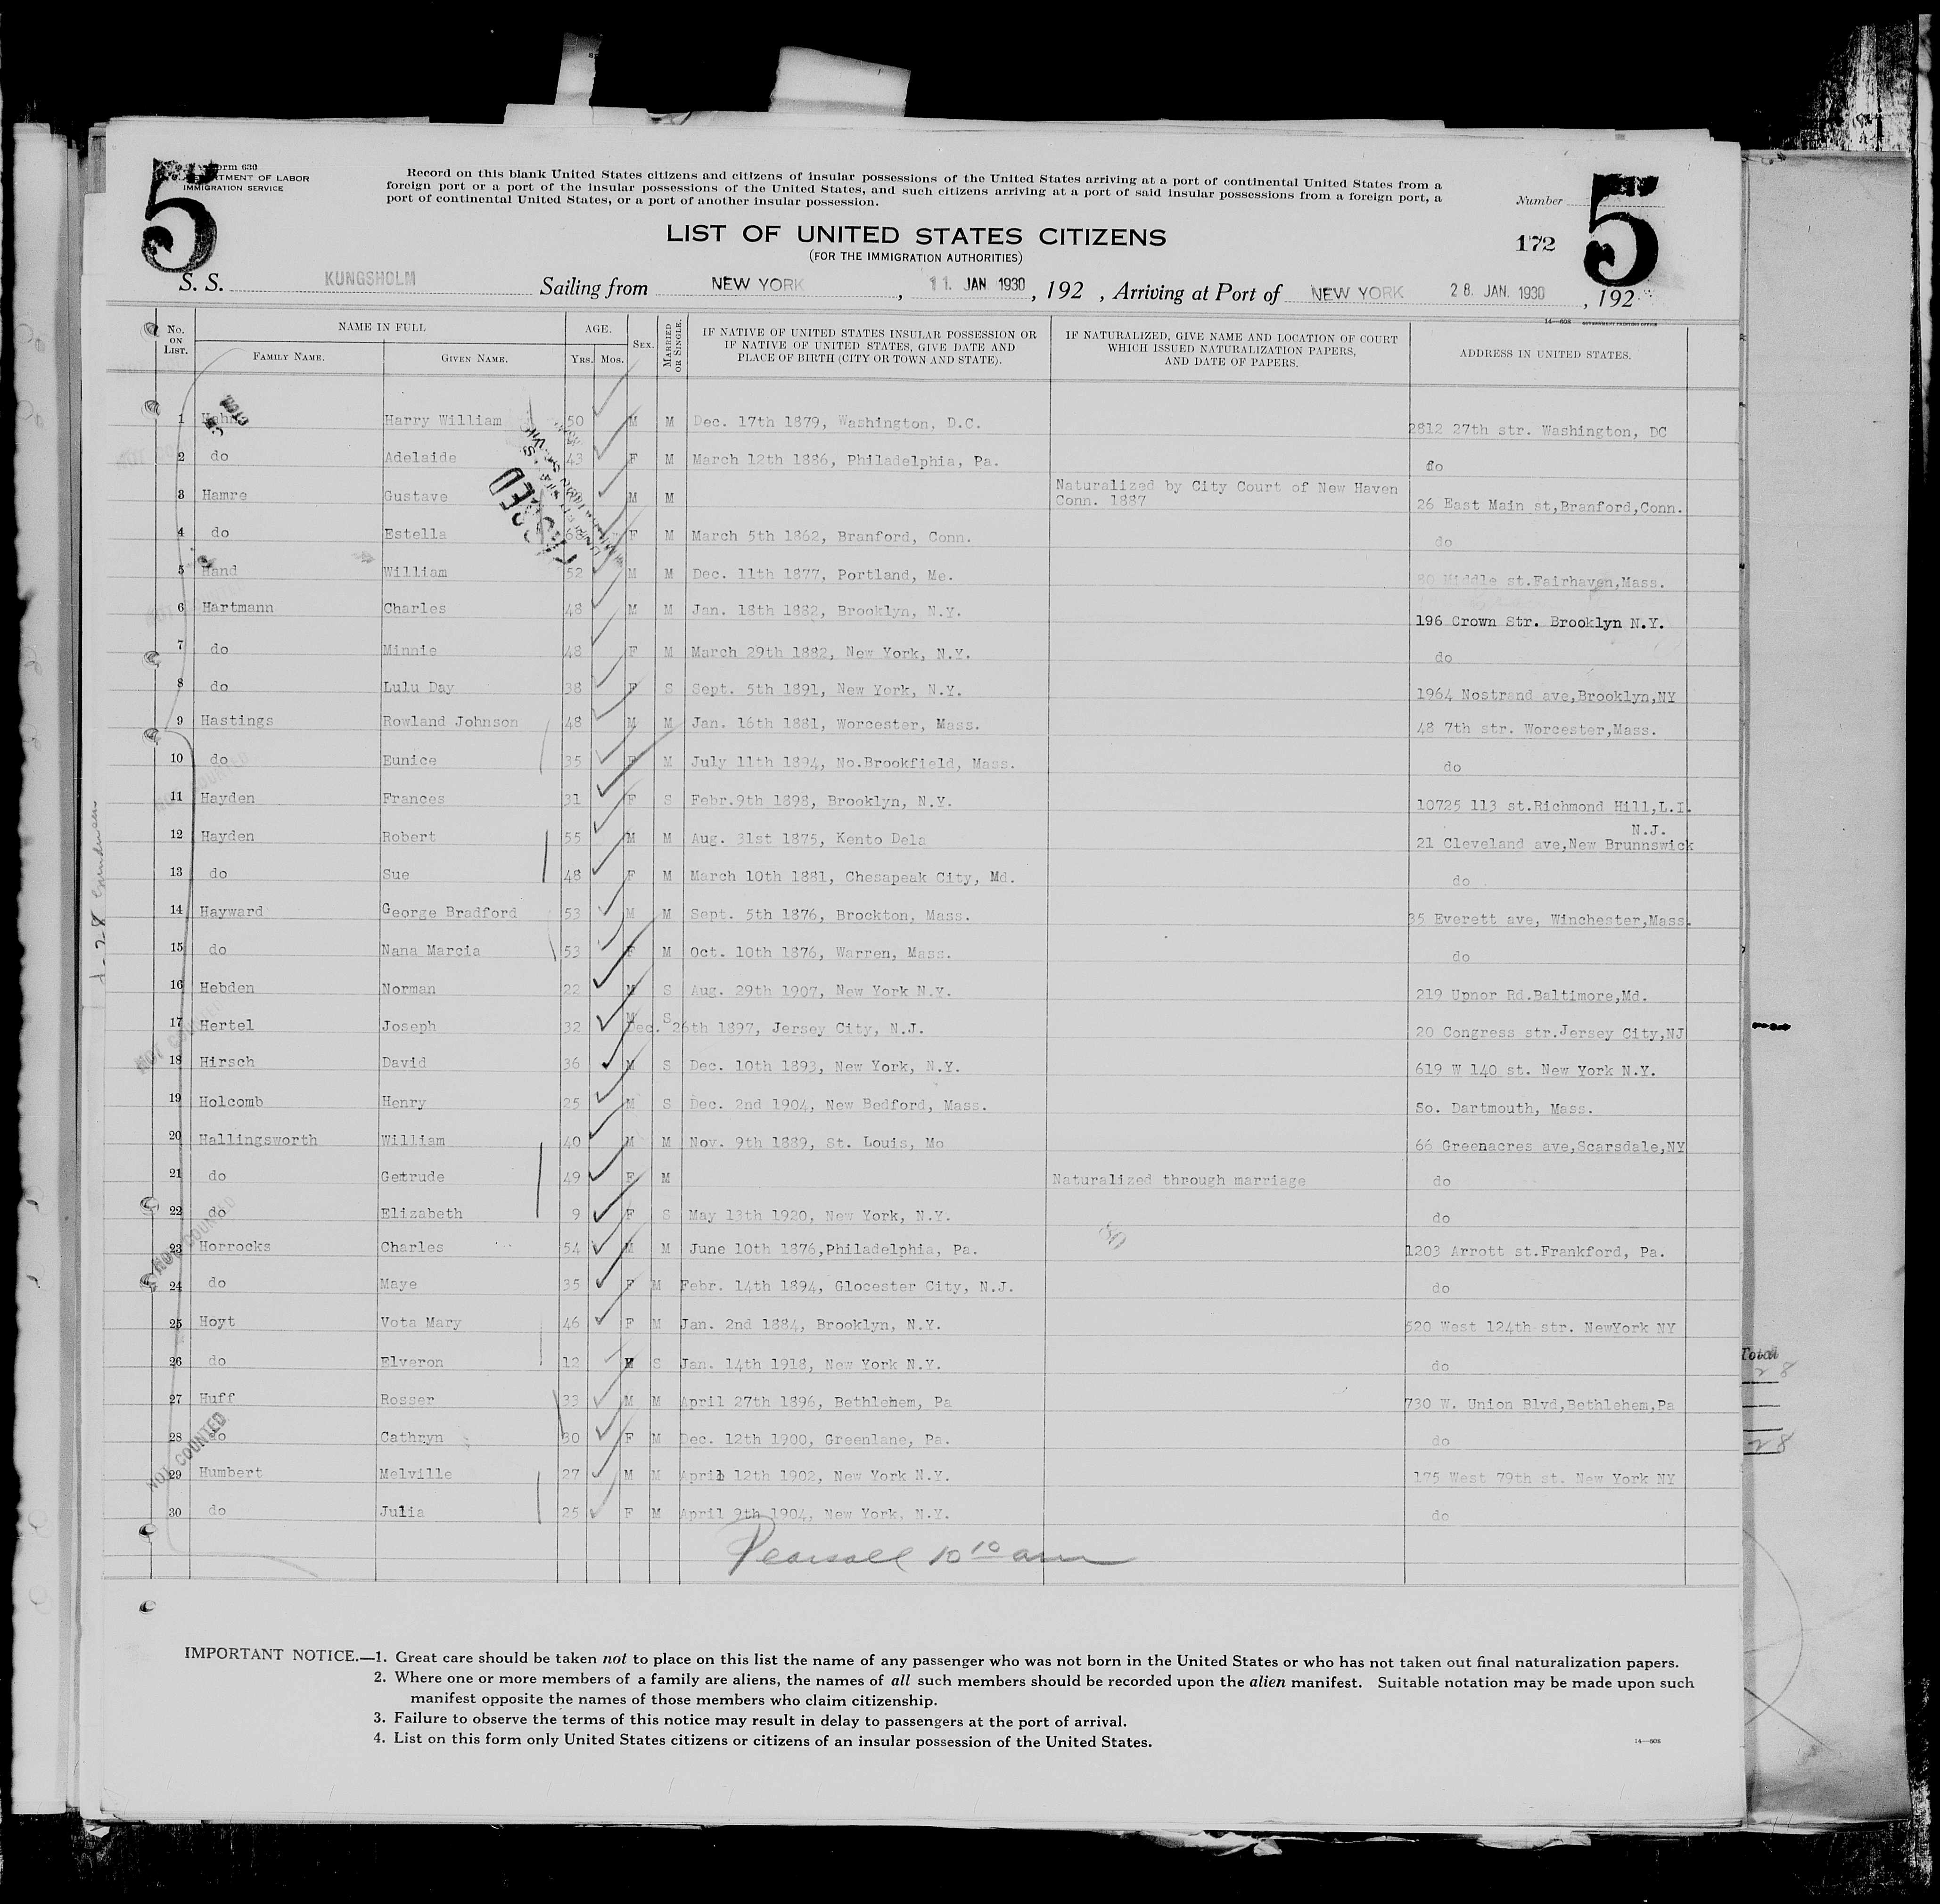 Form 630
DEPARTMENT OF LABOR
IMMIGRATION SERVICE
5
Record on this blank United States citizens and citizens of insular possessions of the United States arriving at a port of continental United States from a
foreign port or a port of the insular possessions of the United States, and such citizens arriving at a port of said insular possessions from a foreign port, a
port of continental United States, or a port of another insular possession.
Number
172
5
LIST OF UNITED STATES CITIZENS
(FOR THE IMMIGRATION AUTHORITIES)
S. S. KUNGSHOLM Sailing from NEW YORK, 11. JAN 1930, 192 , Arriving at Port of NEW YORK 28. JAN. 1930, 192
14—608 GOVERNMENT PRINTING OFFICE
No. ON LIST. NAME IN FULL FAMILY NAME. GIVEN NAME. AGE. Yrs. Mos. SEX. MARRIED OR SINGLE. IF NATIVE OF UNITED STATES INSULAR POSSESSION OR IF NATIVE OF UNITED STATES, GIVE DATE AND PLACE OF BIRTH (CITY OR TOWN AND STATE). IF NATURALIZED, GIVE NAME AND LOCATION OF COURT WHICH ISSUED NATURALIZATION PAPERS, AND DATE OF PAPERS. ADDRESS IN UNITED STATES.
1 Harry William 50 M M Dec. 17th 1879, Washington, D.C. 2812 27th str. Washington, DC
2 do Adelaide 43 F M March 12th 1886, Philadelphia, Pa. do
3 Hamre Gustave M M Naturalized by City Court of New Haven Conn. 1887 26 East Main st,Branford,Conn.
4 do Estella F M March 5th 1862, Branford, Conn. do
5 Hand William 52 M M Dec. 11th 1877, Portland, Me. 80 Middle st.Fairhaven,Mass.
6 Hartmann Charles 48 M M Jan. 18th 1882, Brooklyn, N.Y. 196 Crown Str. Brooklyn N.Y.
7 do Minnie 48 F M March 29th 1882, New York, N.Y. do
8 do Lulu Day 38 F S Sept. 5th 1891, New York, N.Y. 1964 Nostrand ave,Brooklyn,NY
9 Hastings Rowland Johnson 48 M M Jan. 16th 1881, Worcester, Mass. 48 7th str. Worcester,Mass.
10 do Eunice 35 F M July 11th 1894, No.Brookfield, Mass. do
11 Hayden Frances 31 F S Febr.9th 1898, Brooklyn, N.Y. 10725 113 st.Richmond Hill,L.I.
12 Hayden Robert 55 M M Aug. 31st 1875, Kento Dela 21 Cleveland ave,New Brunnswick N.J.
13 do Sue 48 F M March 10th 1881, Chesapeak City, Md. do
14 Hayward George Bradford 53 M M Sept. 5th 1876, Brockton, Mass. 35 Everett ave, Winchester,Mass.
15 do Nana Marcia 53 F M Oct. 10th 1876, Warren, Mass. do
16 Hebden Norman 22 M S Aug. 29th 1907, New York N.Y. 219 Upnor Rd.Baltimore,Md.
17 Hertel Joseph 32 M S Dec. 26th 1897, Jersey City, N.J. 20 Congress str.Jersey City,NJ
18 Hirsch David 36 M S Dec. 10th 1893, New York, N.Y. 619 W 140 st. New York N.Y.
19 Holcomb Henry 25 M S Dec. 2nd 1904, New Bedford, Mass. So. Dartmouth, Mass.
20 Hallingsworth William 40 M M Nov. 9th 1889, St. Louis, Mo 66 Greenacres ave,Scarsdale,NY
21 do Getrude 49 F M Naturalized through marriage do
22 do Elizabeth 9 F S May 13th 1920, New York, N.Y. do
23 Horrocks Charles 54 M M June 10th 1876,Philadelphia, Pa. 1203 Arrott st.Frankford, Pa.
24 do Maye 35 F M Febr. 14th 1894, Glocester City, N.J. do
25 Hoyt Vota Mary 46 F M Jan. 2nd 1884, Brooklyn, N.Y. 520 West 124th str. NewYork NY
26 do Elveron 12 M S Jan. 14th 1918, New York N.Y. do
27 Huff Rosser 33 M M April 27th 1896, Bethlehem, Pa 730 W. Union Blvd,Bethlehem,Pa
28 do Cathryn 30 F M Dec. 12th 1900, Greenlane, Pa. do
29 Humbert Melville 27 M M April 12th 1902, New York N.Y. 175 West 79th st. New York NY
30 do Julia 25 F M April 9th 1904, New York, N.Y. do
Pearsall 10 10 am
NOT COUNTED
NOT COUNTED
NOT COUNTED
NOT COUNTED
PASSED
Total
28
28
IMPORTANT NOTICE.—1. Great care should be taken not to place on this list the name of any passenger who was not born in the United States or who has not taken out final naturalization papers.
2. Where one or more members of a family are aliens, the names of all such members should be recorded upon the alien manifest. Suitable notation may be made upon such
manifest opposite the names of those members who claim citizenship.
3. Failure to observe the terms of this notice may result in delay to passengers at the port of arrival.
4. List on this form only United States citizens or citizens of an insular possession of the United States.
14—608